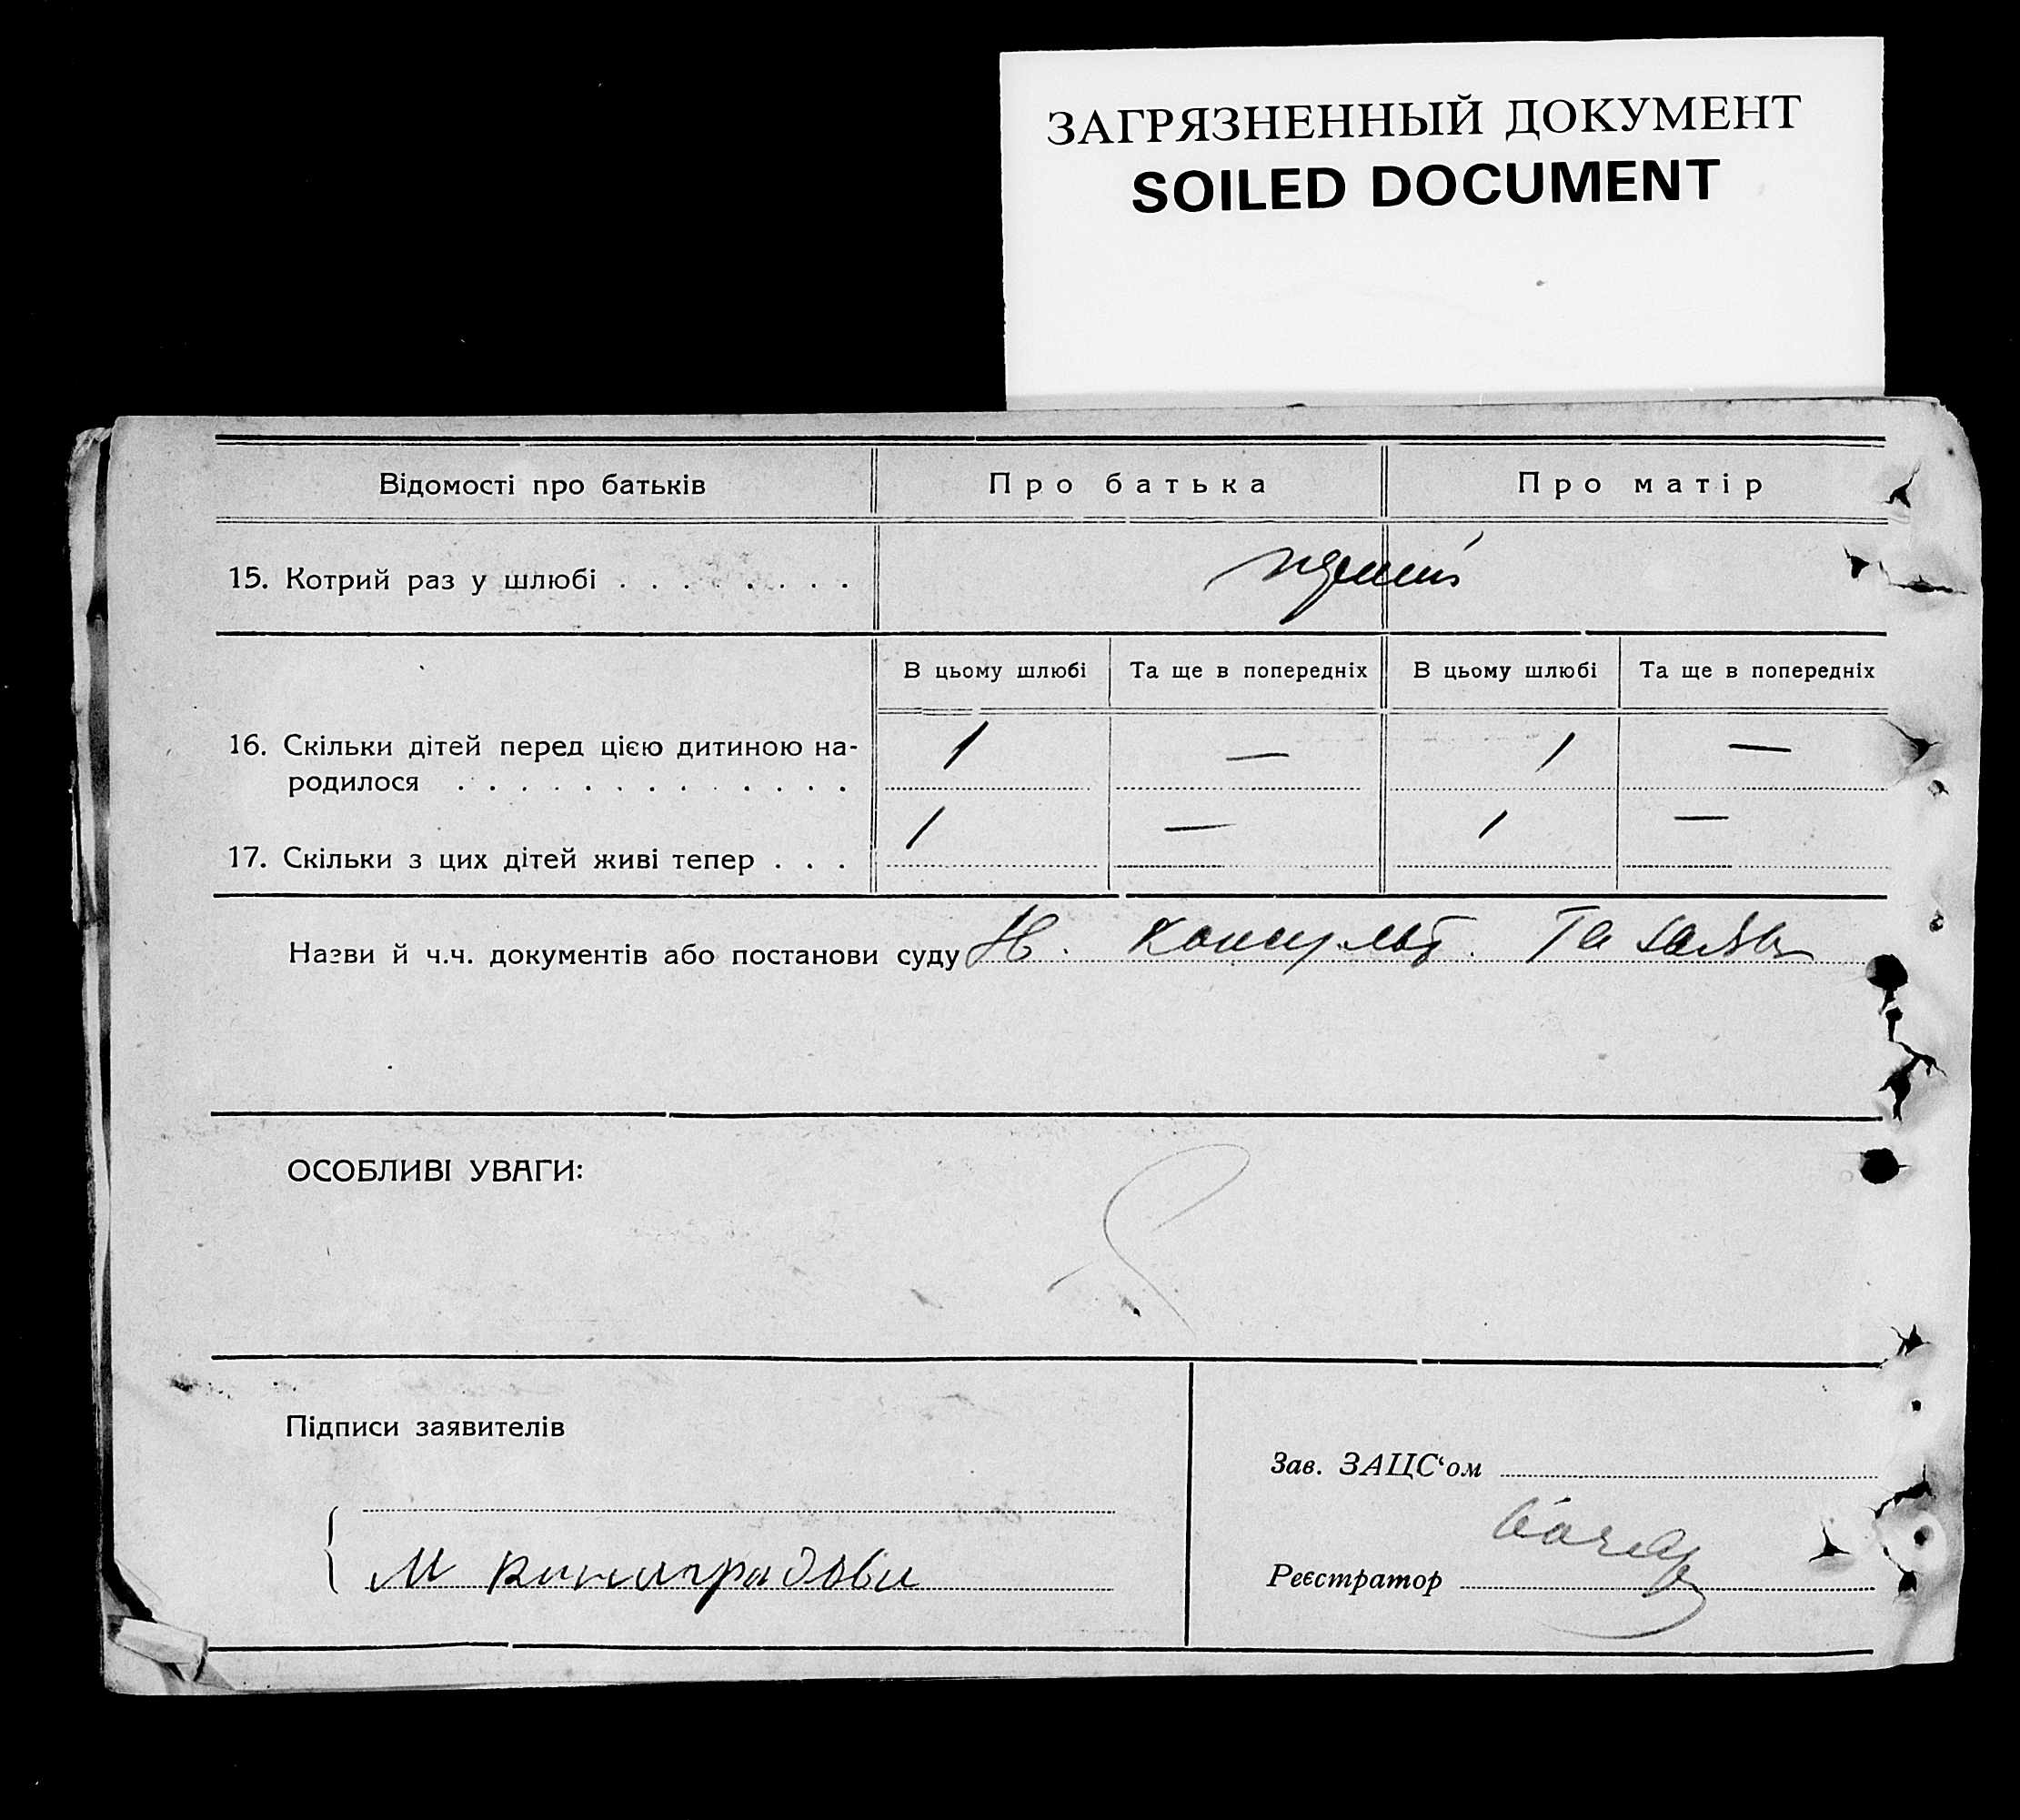 ЗАГРЯЗНЕННЫЙ ДОКУМЕНТ
SOILED DOCUMENT
Відомості про батьків Про батька Про матір
15. Котрий раз у шлюбі . . . . . . . .
В цьому шлюбі Та ще в попередніх В цьому шлюбі Та ще в попередніх
16. Скільки дітей перед цією дитиною на- 1 — 1 —
родилося . . . . . . . . . . . . .
17. Скільки з цих дітей живі тепер . . . 1 — 1 —
Назви й ч.ч. документів або постанови суду Та
ОСОБЛИВІ УВАГИ:
Підписи заявителів
Зав. ЗАЦС‘ом
М Виноградова
Реєстратор